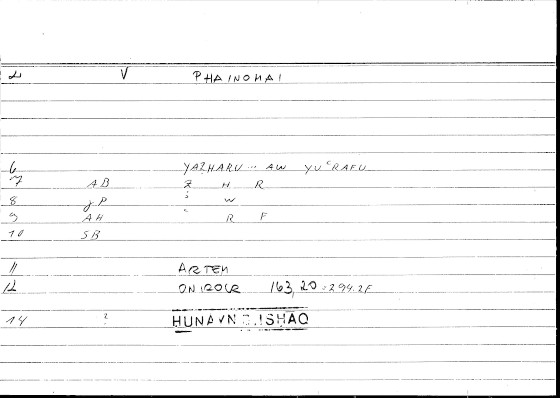 2 V PHAINOMAI
6 YAZHARU ... AW YUʿRAFU
7 AB Z H R
8 JP W
9 AH R F
10 SB
11 ARTEM
12 ONIROCR 163,20 = 294.2F
14 ? HUNAYN B.ISHAQ